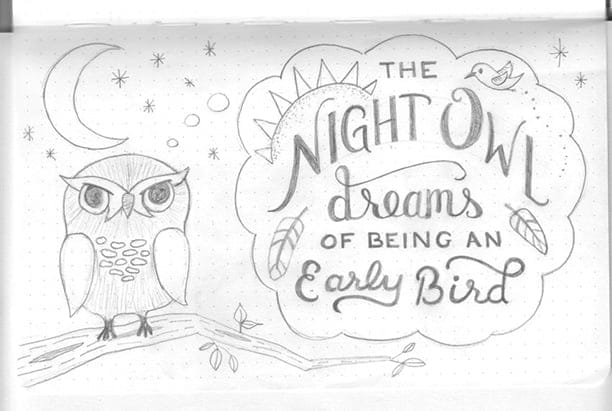 THE
NIGHT OWL
dreams
OF BEING AN
Early Bird